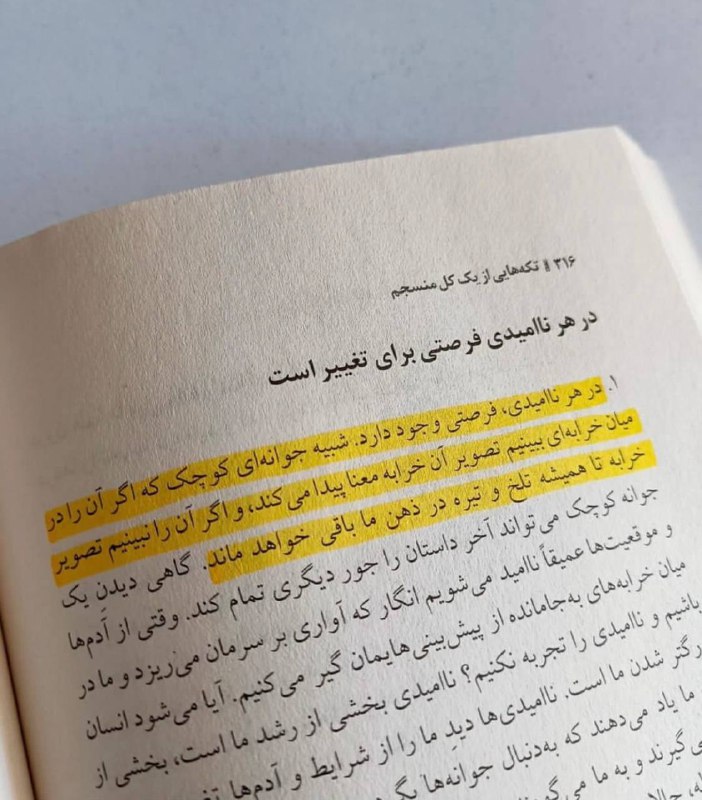 ۳۱۶ // تکه‌هایی از یک کل منسجم
در هر ناامیدی فرصتی برای تغییر است
۱. در هر ناامیدی، فرصتی وجود دارد. شبیه جوانه‌ای کوچک که اگر آن را در
میان خرابه‌ای ببینیم تصویر آن خرابه معنا پیدا می‌کند، و اگر آن را نبینیم تصویر
خرابه تا همیشه تلخ و تیره در ذهن ما باقی خواهد ماند. گاهی دیدنِ یک
جوانه کوچک می‌تواند آخر داستان را جور دیگری تمام کند. وقتی از آدم‌ها
و موقعیت‌ها عمیقاً ناامید می‌شویم انگار که آواری بر سرمان می‌ریزد و ما در
میان خرابه‌های به‌جامانده از پیش‌بینی‌هایمان گیر می‌کنیم. آیا می‌شود انسان
باشیم و ناامیدی را تجربه نکنیم؟ ناامیدی بخشی از رشد ما است، بخشی از
شدن ما است. ناامیدی‌ها دیدِ ما را از شرایط و آدم‌ها
ما یاد می‌دهند که به‌دنبال جوانه‌ها
و به ما